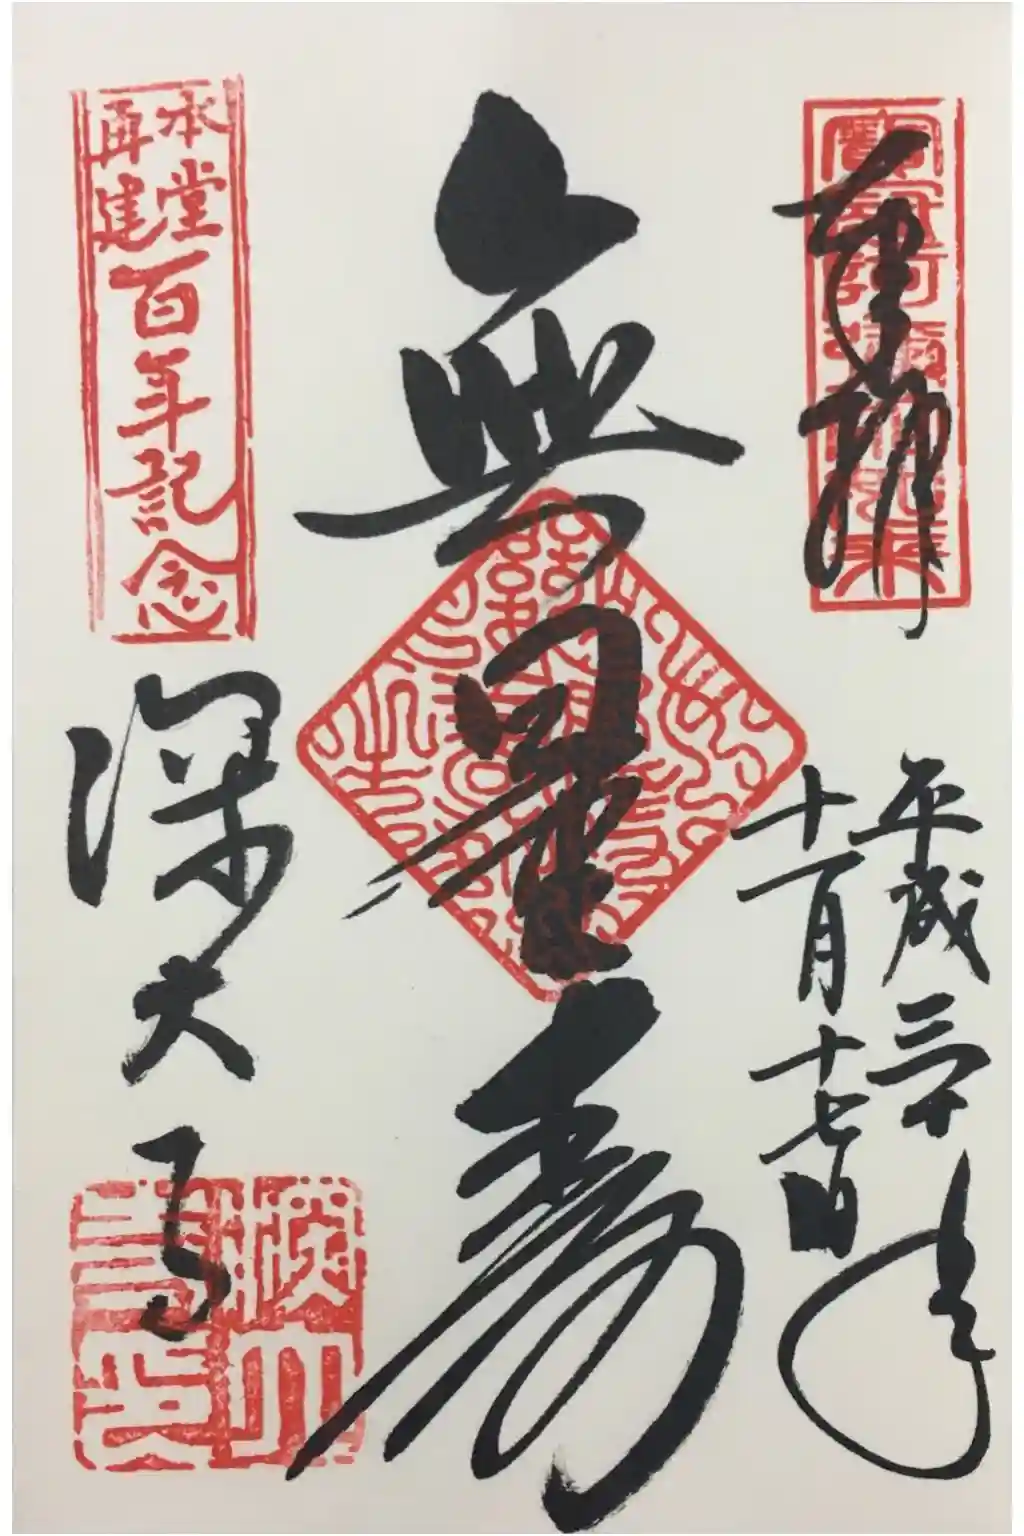 奉拝
平成三十年
十一月十七日
無量寿
本堂
再建
百年記念
深大寺
深大
寺印